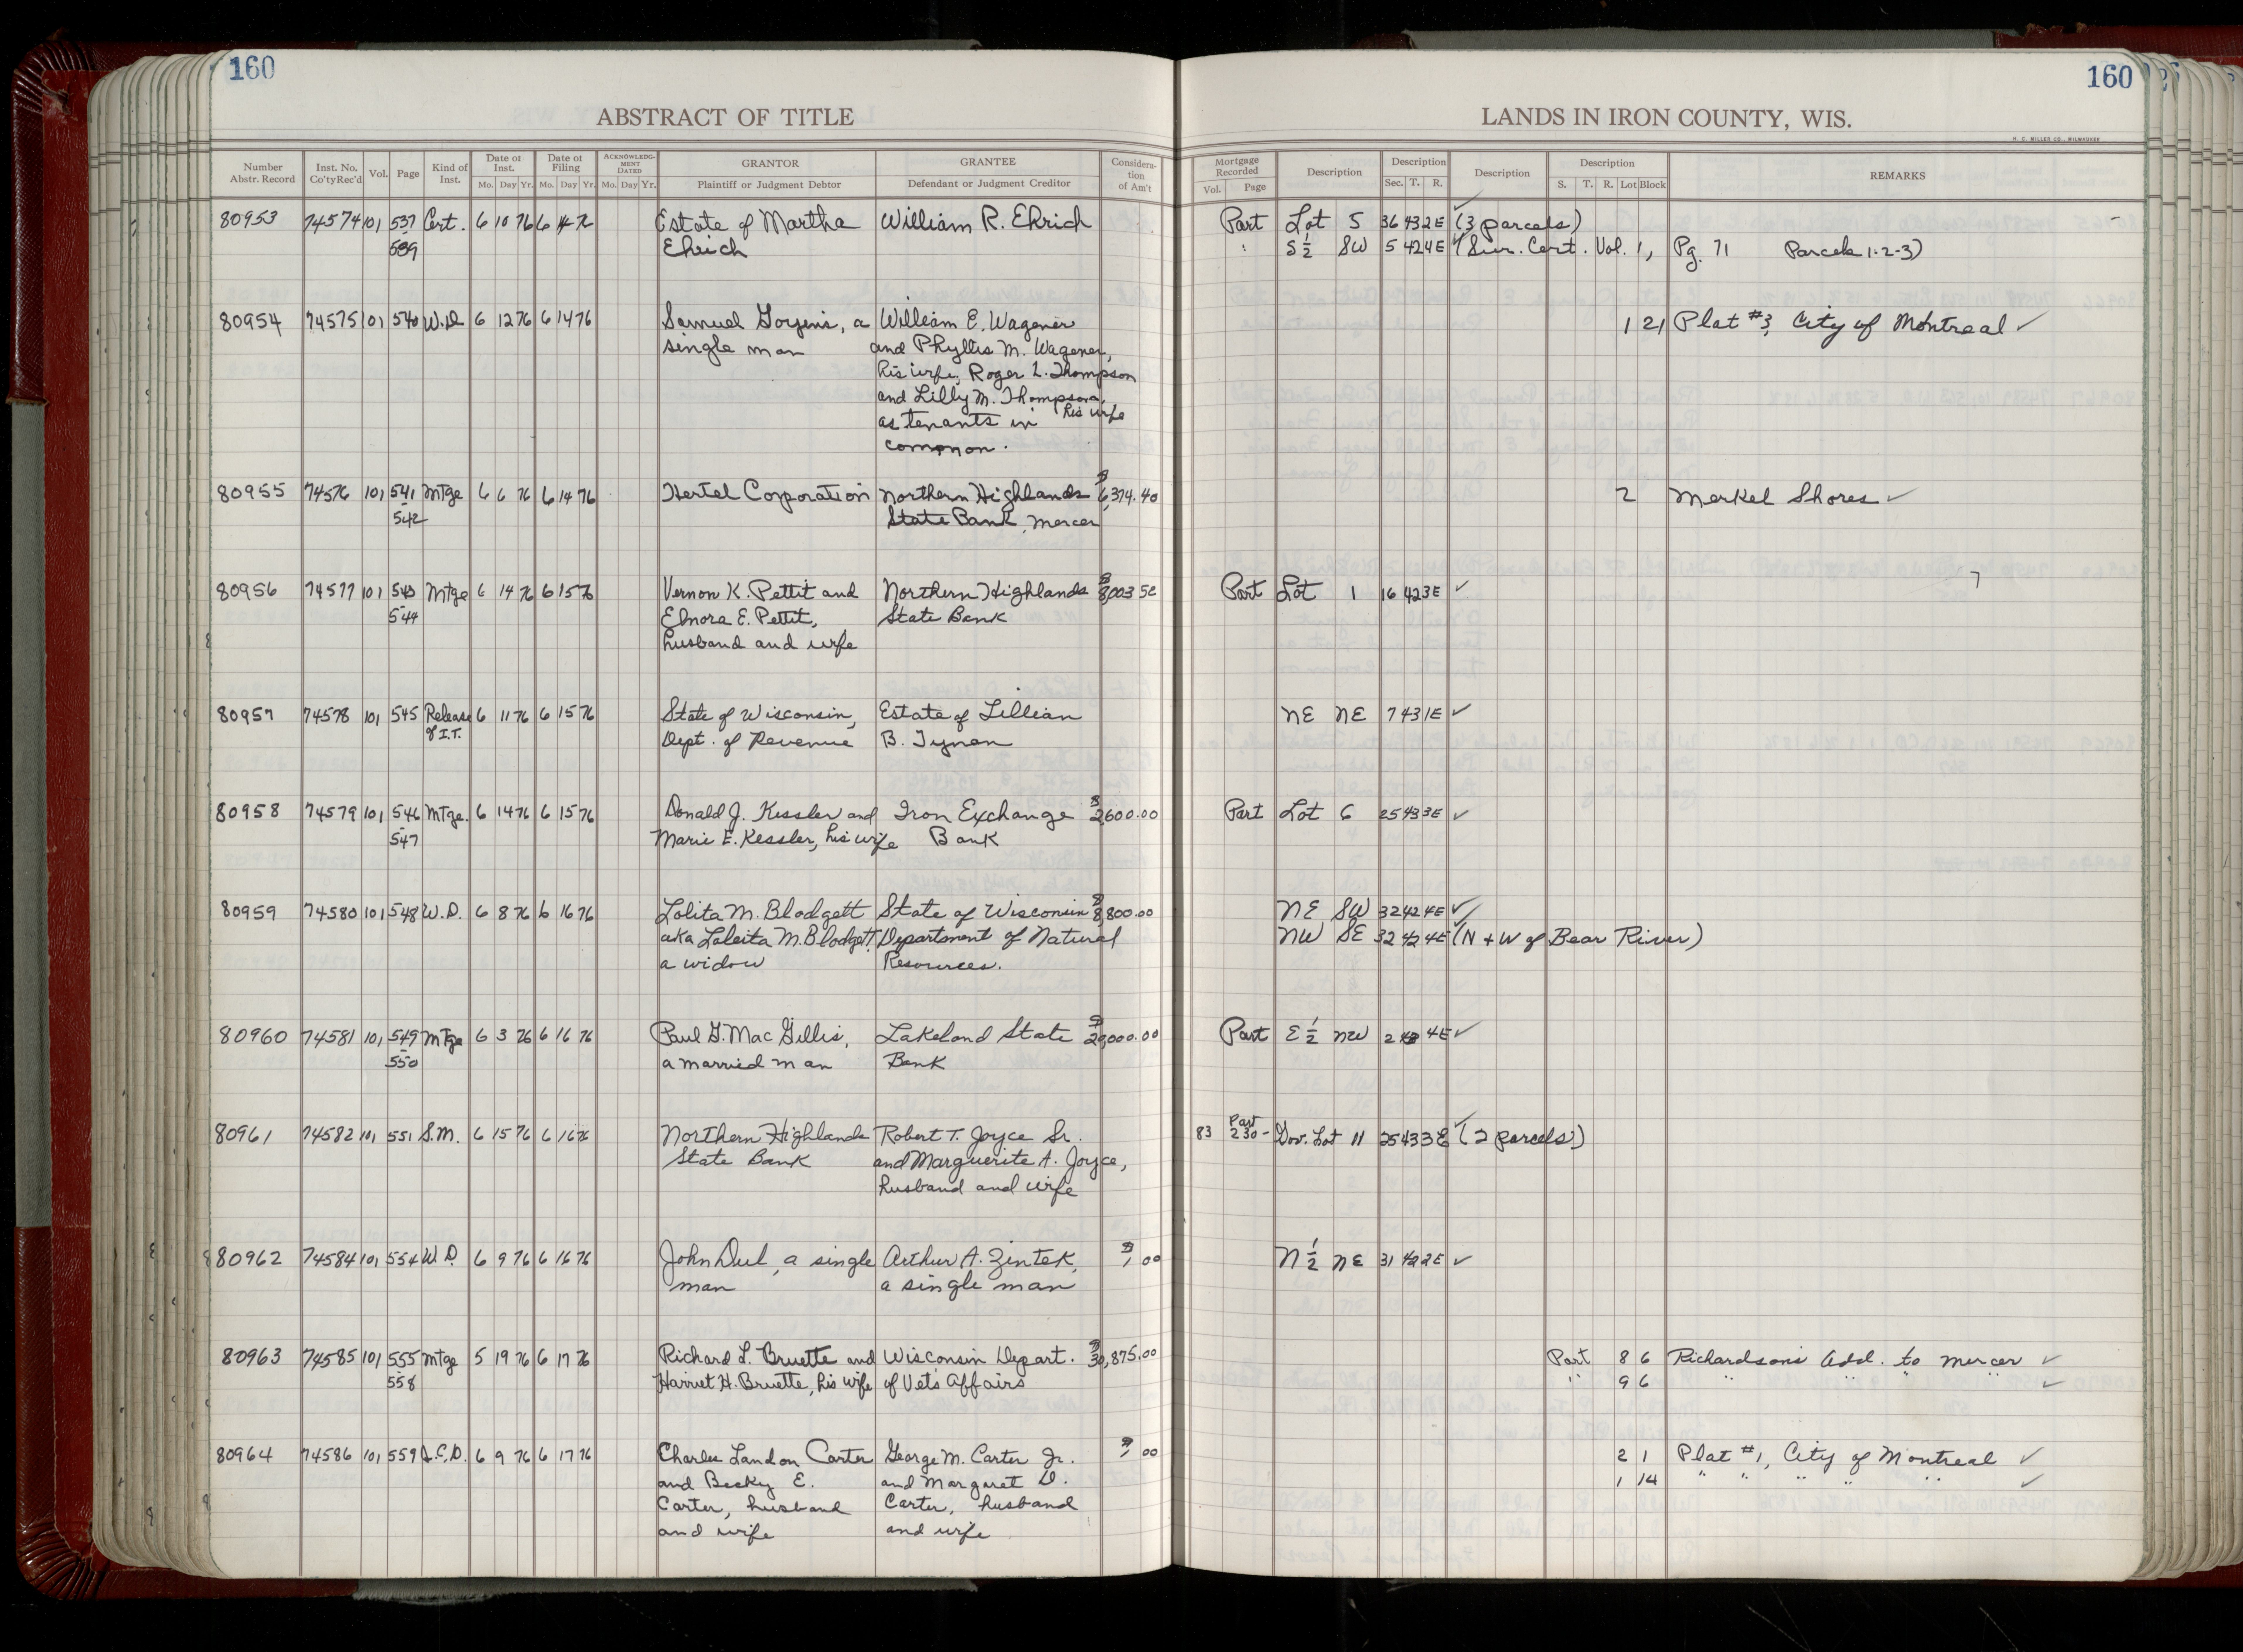 160
160
ABSTRACT OF TITLE
LANDS IN IRON COUNTY, WIS.
H. C. MILLER CO., MILWAUKEE
Number Abstr. Record Inst. No. Co'ty Rec'd Vol. Page Kind of Inst. Date of Inst. Mo. Day Yr. Date of Filing Mo. Day Yr. ACKNOWLEDGMENT DATED Mo. Day Yr. GRANTOR Plaintiff or Judgment Debtor GRANTEE Defendant or Judgment Creditor Consideration of Am't Mortgage Recorded Vol. Page Description Description Sec. T. R. Description Description S. T. R. Lot Block REMARKS
80953 74574 101 537 Cert. 6 10 76 6 14 76 Estate of Martha William R. Ehrich Part Lot 5 36 43 2E (3 parcels)
589 Ehrich S 1/2 SW 5 42 4E (Sur. Cert. Vol. 1, Pg. 71 Parcels 1-2-3)
80954 74575 101 540 W.D. 6 12 76 6 14 76 Samuel Goryenis, a William E. Wagener 1 21 Plat #3, City of Montreal ✓
single man and Phyllis M. Wagener,
his wife, Roger L. Thompson
and Lilly M. Thompson,
his wife
as tenants in
common.
80955 74576 101 541 Mtge 6 6 76 6 14 76 Hertel Corporation Northern Highlands $6,374.40 2 Merkel Shores ✓
542 State Bank, Mercer
80956 74577 101 543 Mtge 6 14 76 6 15 76 Vernon K. Pettit and Northern Highlands $8,003 52 Part Lot 1 16 42 3E ✓
544 Elnora E. Pettit, State Bank
husband and wife
80957 74578 101 545 Release 6 11 76 6 15 76 State of Wisconsin, Estate of Lillian NE NE 7 43 1E ✓
of I.T. Dept. of Revenue B. Tynen
80958 74579 101 546 Mtge. 6 14 76 6 15 76 Donald J. Kessler and Iron Exchange $2600.00 Part Lot 6 25 43 3E ✓
547 Marie E. Kessler, his wife Bank
80959 74580 101 548 W.D. 6 8 76 6 16 76 Lolita M. Blodgett State of Wisconsin $8,800.00 NE SW 32 42 4E ✓
aka Loleita M. Blodgett, Department of Natural NW SE 32 42 4E (N + W of Bear River)
a widow Resources.
80960 74581 101 549 Mtge 6 3 76 6 16 76 Paul G. Mac Gillis, Lakeland State $20,000.00 Part E 1/2 NW 2 4E ✓
550 a married man Bank
80961 74582 101 551 S.M. 6 15 76 6 16 76 Northern Highlands Robert T. Joyce Sr. 83 Part 230- Gov. Lot 11 25 43 3E (2 parcels)
State Bank and Marguerite A. Joyce,
husband and wife
80962 74584 101 554 W.D. 6 9 76 6 16 76 John Dul, a single Arthur A. Zintek, $1 00 N 1/2 NE 31 42 2E ✓
man a single man
80963 74585 101 555 Mtge 5 19 76 6 17 76 Richard L. Bruette and Wisconsin Depart. $30,875.00 Part 8 6 Richardson's Add. to Mercer ✓
558 Harriet H. Bruette, his wife of Vets Affairs " 9 6 " " " " ✓
80964 74586 101 559 Q.C.D. 6 9 76 6 17 76 Charles Landon Carter George M. Carter Jr. $1 00 2 1 Plat #1, City of Montreal ✓
and Becky E. and Margaret D. 1 14 " " " " " ✓
Carter, husband Carter, husband
and wife and wife